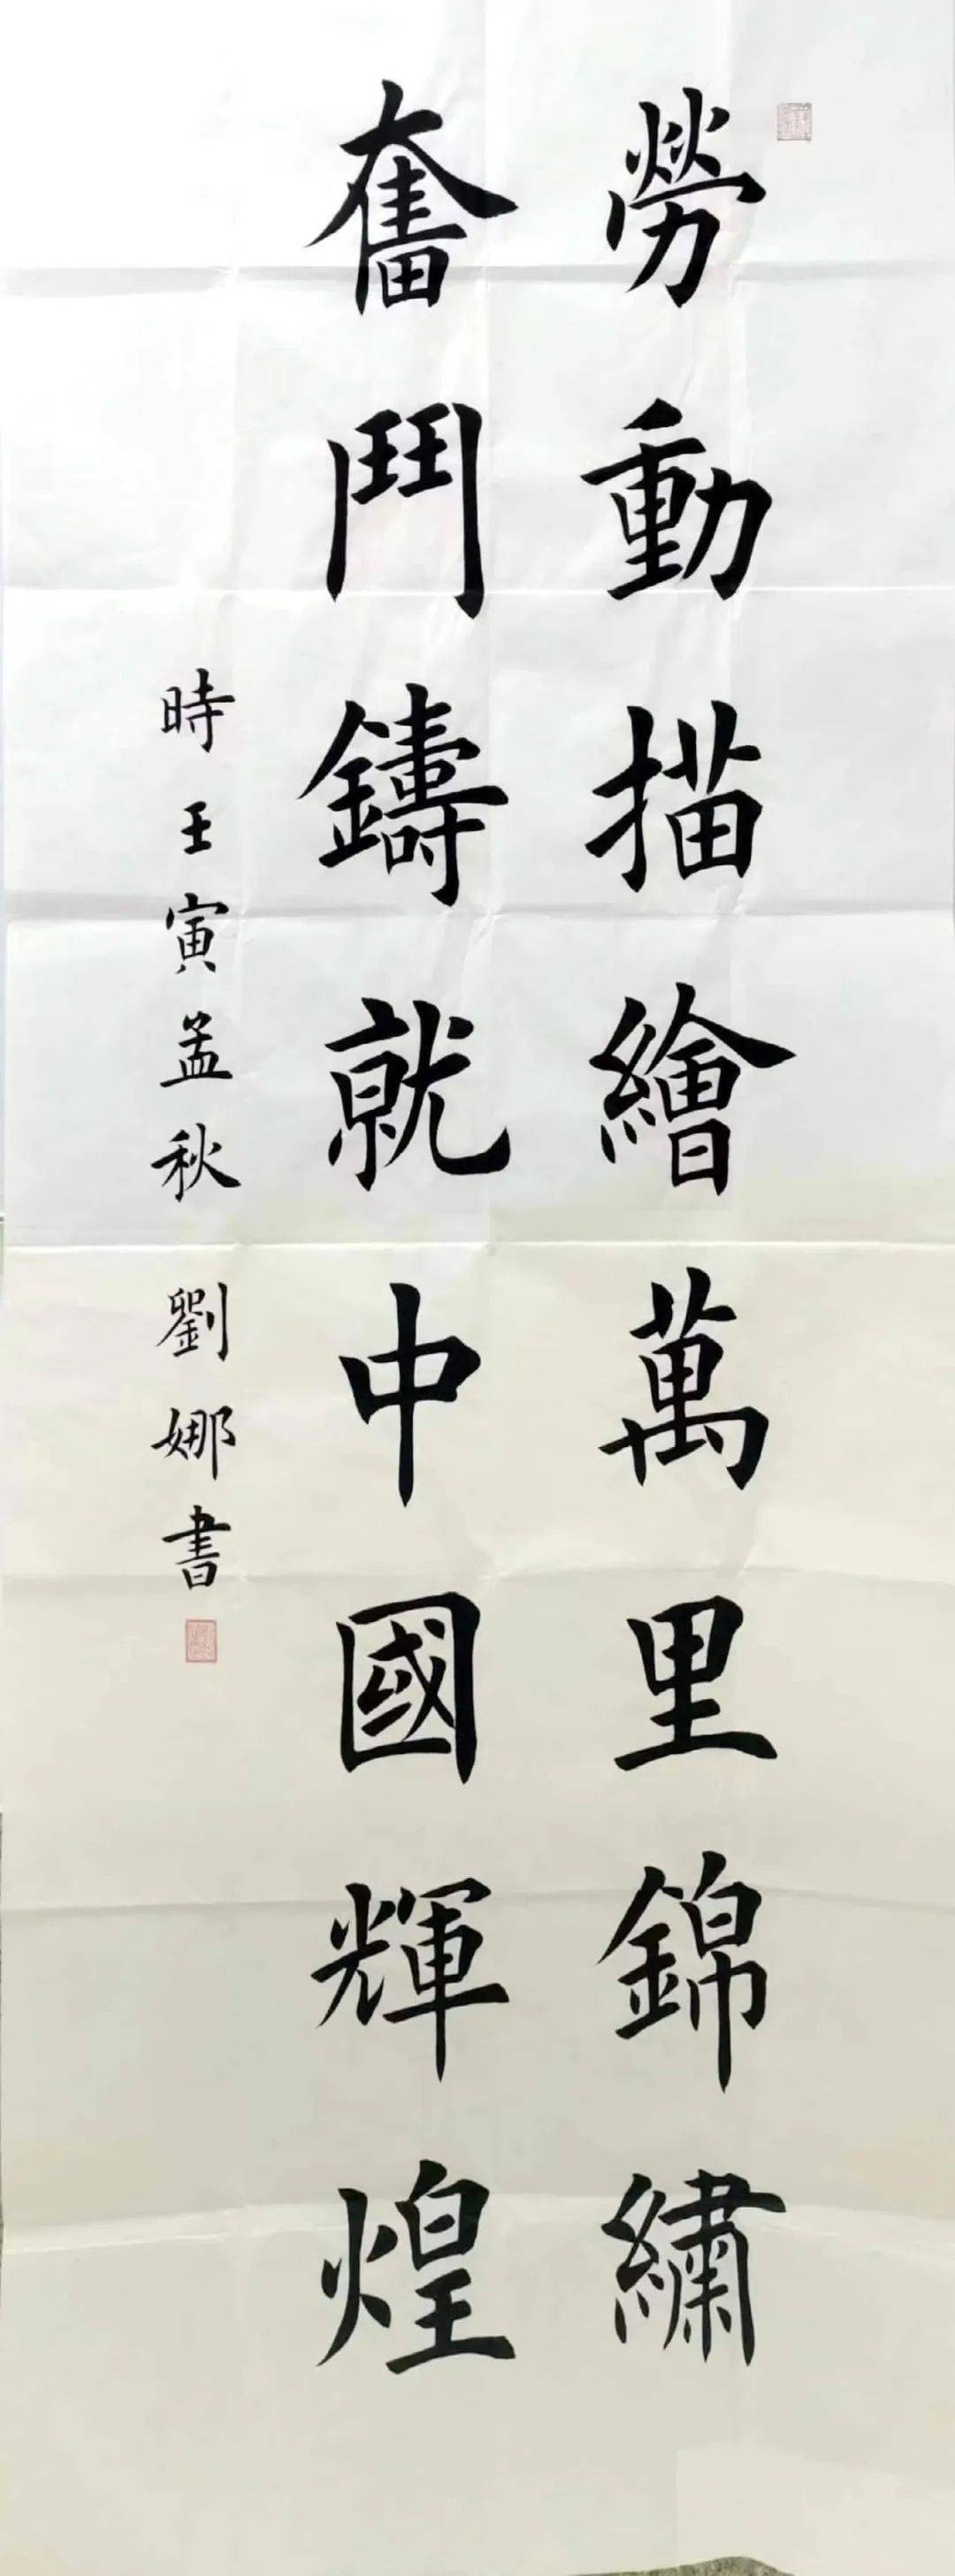 勞動描繪萬里錦繡
奮鬥鑄就中國輝煌
時壬寅孟秋 劉娜書